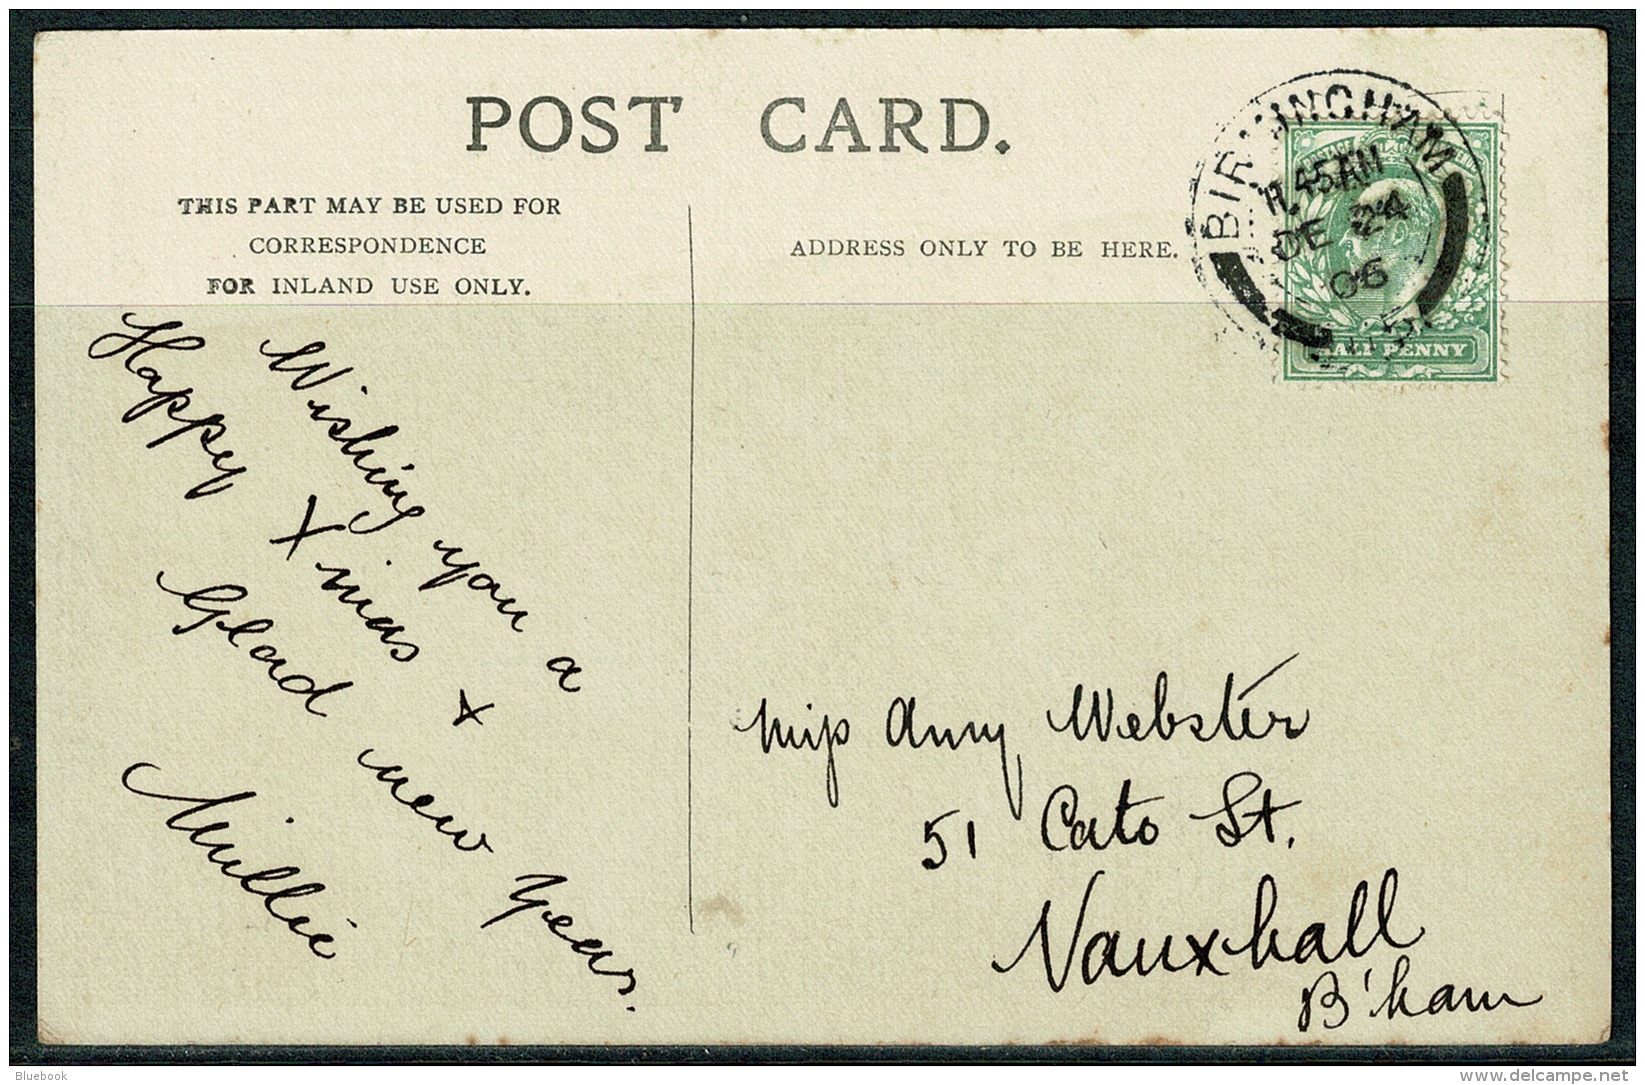 POST CARD.
THIS PART MAY BE USED FOR
CORRESPONDENCE
FOR INLAND USE ONLY.
ADDRESS ONLY TO BE HERE.
BIRMINGHAM
11.45AM
DE 24
06
HALF PENNY
Wishing you a
Happy Xmas +
Glad new Year.
Millie
Miss Amy Webster
51 Cato St.
Vauxhall
B'ham
Bluebook
delcampe.net